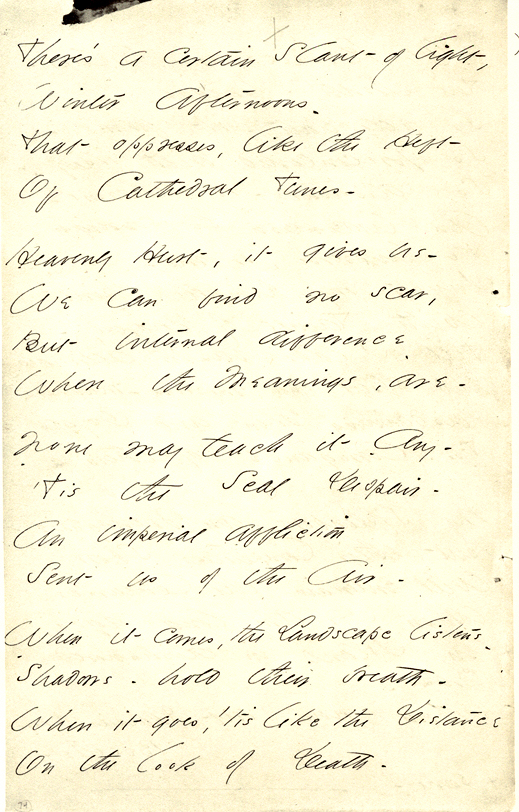 There's a certain Slant of light,
Winter Afternoons.
That oppresses, like the Heft
Of Cathedral Tunes-
Heavenly Hurt, it gives us-
We can find no scar,
But internal difference
Where the Meanings, are-
None may teach it Any-
'Tis the Seal Despair-
An imperial affliction
Sent us of the Air-
When it comes, the Landscape listens.
Shadows - hold their breath-
When it goes, 'tis like the Distance
On the look of Death-